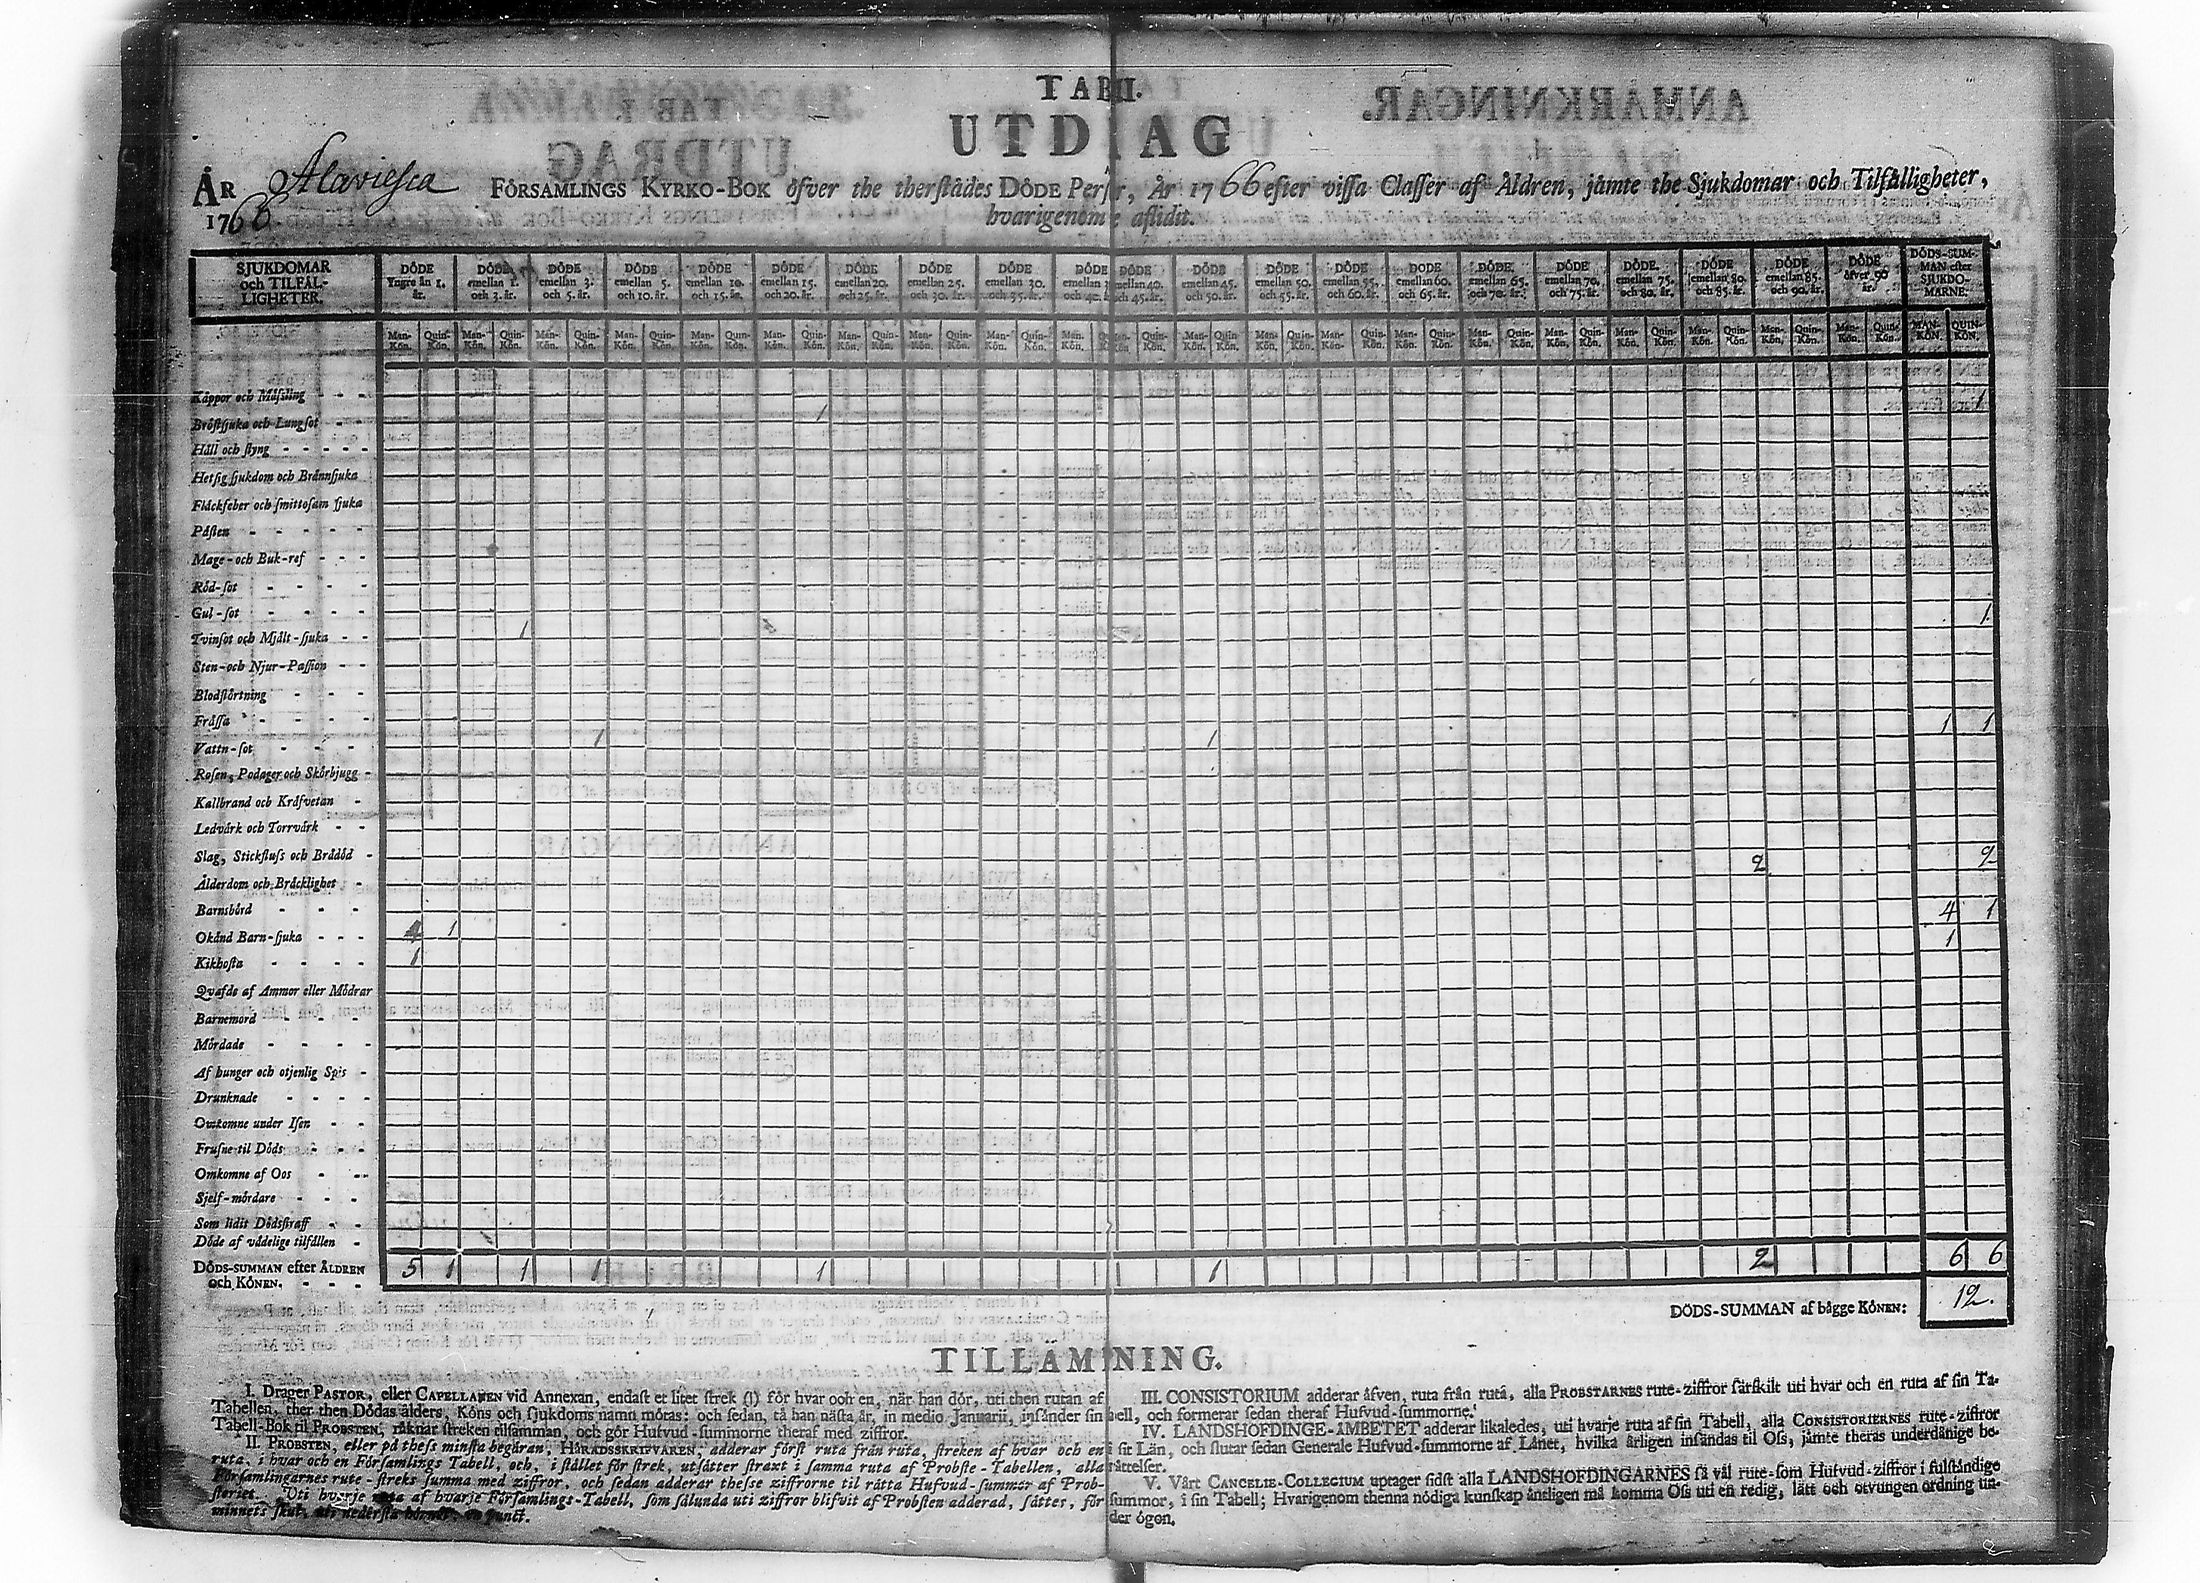 TAB II.
UTDRAG
ÅR 1766 Alaviesca FÖRSAMLINGS KYRKO-BOK öfver the therstådes DÖDE Perſ r, År 1766 efter viſſa Claſſer af Åldren, jämte the Sjukdomar och Tilfälligheter,
hvarigenom e aflidit.
SJUKDOMAR och TILFÄL-LIGHETER. | DÖDE Yngre än 1. år. | DÖDE emellan 1. och 3. år. | DÖDE emellan 3. och 5. år. | DÖDE emellan 5. och 10. år. | DÖDE emellan 10. och 15. år. | DÖDE emellan 15. och 20. år. | DÖDE emellan 20. och 25. år. | DÖDE emellan 25. och 30. år. | DÖDE emellan 30. och 35. år. | DÖDE emellan och 40. år. | DÖDE emellan 40. och 45. år. | DÖDE emellan 45. och 50. år. | DÖDE emellan 50. och 55. år. | DÖDE emellan 55. och 60. år. | DÖDE emellan 60. och 65. år. | DÖDE emellan 65. och 70. år. | DÖDE emellan 70. och 75. år. | DÖDE emellan 75. och 80. år. | DÖDE emellan 80. och 85. år. | DÖDE emellan 85. och 90. år. | DÖDE öfver 90 år. | DÖDS-SUM-MAN efter SJUKDO-MARNE.
Man-Kön. Quin-Kön. Man-Kön. Quin-Kön. Man-Kön. Quin-Kön. Man-Kön. Quin-Kön. Man-Kön. Quin-Kön. Man-Kön. Quin-Kön. Man-Kön. Quin-Kön. Man-Kön. Quin-Kön. Man-Kön. Quin-Kön. Man-Kön. Man-Kön. Quin-Kön. Man-Kön. Quin-Kön. Man-Kön. Quin-Kön. Man-Kön. Quin-Kön. Man-Kön. Quin-Kön. Man-Kön. Quin-Kön. Man-Kön. Quin-Kön. Man-Kön. Quin-Kön. Man-Kön. Quin-Kön. Man-Kön. Quin-Kön. Man-Kön. Quin-Kön. MAN-KÖN. QUIN-KÖN.
Kåppor och Mäſsling
Bröſtſjuka och Lungſot 1 1
Håll och ſtyng
Hetſig ſjukdom och Brännſjuka
Fläckfeber och ſmittoſam ſjuka
Påſten
Mage-och Buk-ref
Röd-ſot
Gul-ſot
Tvinſot och Mjält-ſjuka 1 1
Sten-och Njur-Paſſion
Blodſtörtning
Fråſſa
Vattn-ſot 1 1 1 1
Roſen, Podager och Skörbjugg
Kallbrand och Kräfvetan
Ledvärk och Torrvärk
Slag, Stickfluſs och Brådöd
Ålderdom och Bräcklighet 2 2
Barnsbörd
Okänd Barn-ſjuka 4 1 4 1
Kikhoſta 1 1
Qvafde af Ammor eller Mödrar
Barnemord
Mördade
Af hunger och otjenlig Spis
Drunknade
Omkomne under Iſen
Fruſne til Döds
Omkomne af Oos
Sjelf-mördare
Som lidit Dödsſtraff
Döde af vådelige tilfällen
DÖDS-SUMMAN efter ÅLDREN och KÖNEN. 5 1 1 1 1 1 2 6 6
DÖDS-SUMMAN af bägge KÖNEN: 12.
TILLÄM NING.
I. Drager PASTOR, eller CAPELLANEN vid Annexan, endaſt et litet ſtrek (|) för hvar och en, när han dör, uti then rutan af
Tabellen, ther then Dödas ålders, Köns och ſjukdoms namn mötas: och ſedan, tå han näſta år, in medio Januarii, inſänder ſin
Tabell-Bok til PROBSTEN, räknar ſtreken tillſamman, och gör Hufvud-ſummorne theraf med ziffror.
II. PROBSTEN, eller på theſs minſta begäran, HÄRADSSKRIFVAREN, adderar förſt ruta från ruta, ſtreken af hvar och en
ruta, i hvar och en Förſamlings Tabell, och, i ſtället för ſtrek, utſätter ſtraxt i ſamma ruta af Probſte-Tabellen, alla
Förſamlingarnes rute-ſtreks ſumma med ziffror, och ſedan adderar theſse ziffrorne til rätta Hufvud-ſummor af Prob-
ſteriet. Uti hvarje ruta af hvarje Förſamlings-Tabell, ſom ſålunda uti ziffror blifvit af Probſten adderad, ſättes, för
minnets ſkul, uti nederſta hörnet, en punct.
III. CONSISTORIUM adderar äfven, ruta från ruta, alla PROBSTARNES rute-ziffror färſkilt uti hvar och en ruta af ſin Ta-
bell, och formerar ſedan theraf Hufvud-ſummorne.
IV. LANDSHOFDINGE-ÄMBETET adderar likaledes, uti hvarje ruta af ſin Tabell, alla CONSISTORIERNES rute-ziffror
i ſit Län, och ſlutar ſedan Generale Hufvud-ſummorne af Länet, hvilka årligen inſändas til Oſs, jämte theras underdånige be-
rättelſer.
V. Vårt CANCELIE-COLLEGIUM uptager ſidſt alla LANDSHOFDINGARNES ſå väl rute-ſom Hufvud-ziffror i fulſtändige
ſummor, i ſin Tabell; Hvarigenom thenna nödiga kunſkap äntligen må komma Oſs uti en redig, lätt och otvungen ordning un-
der ögon.